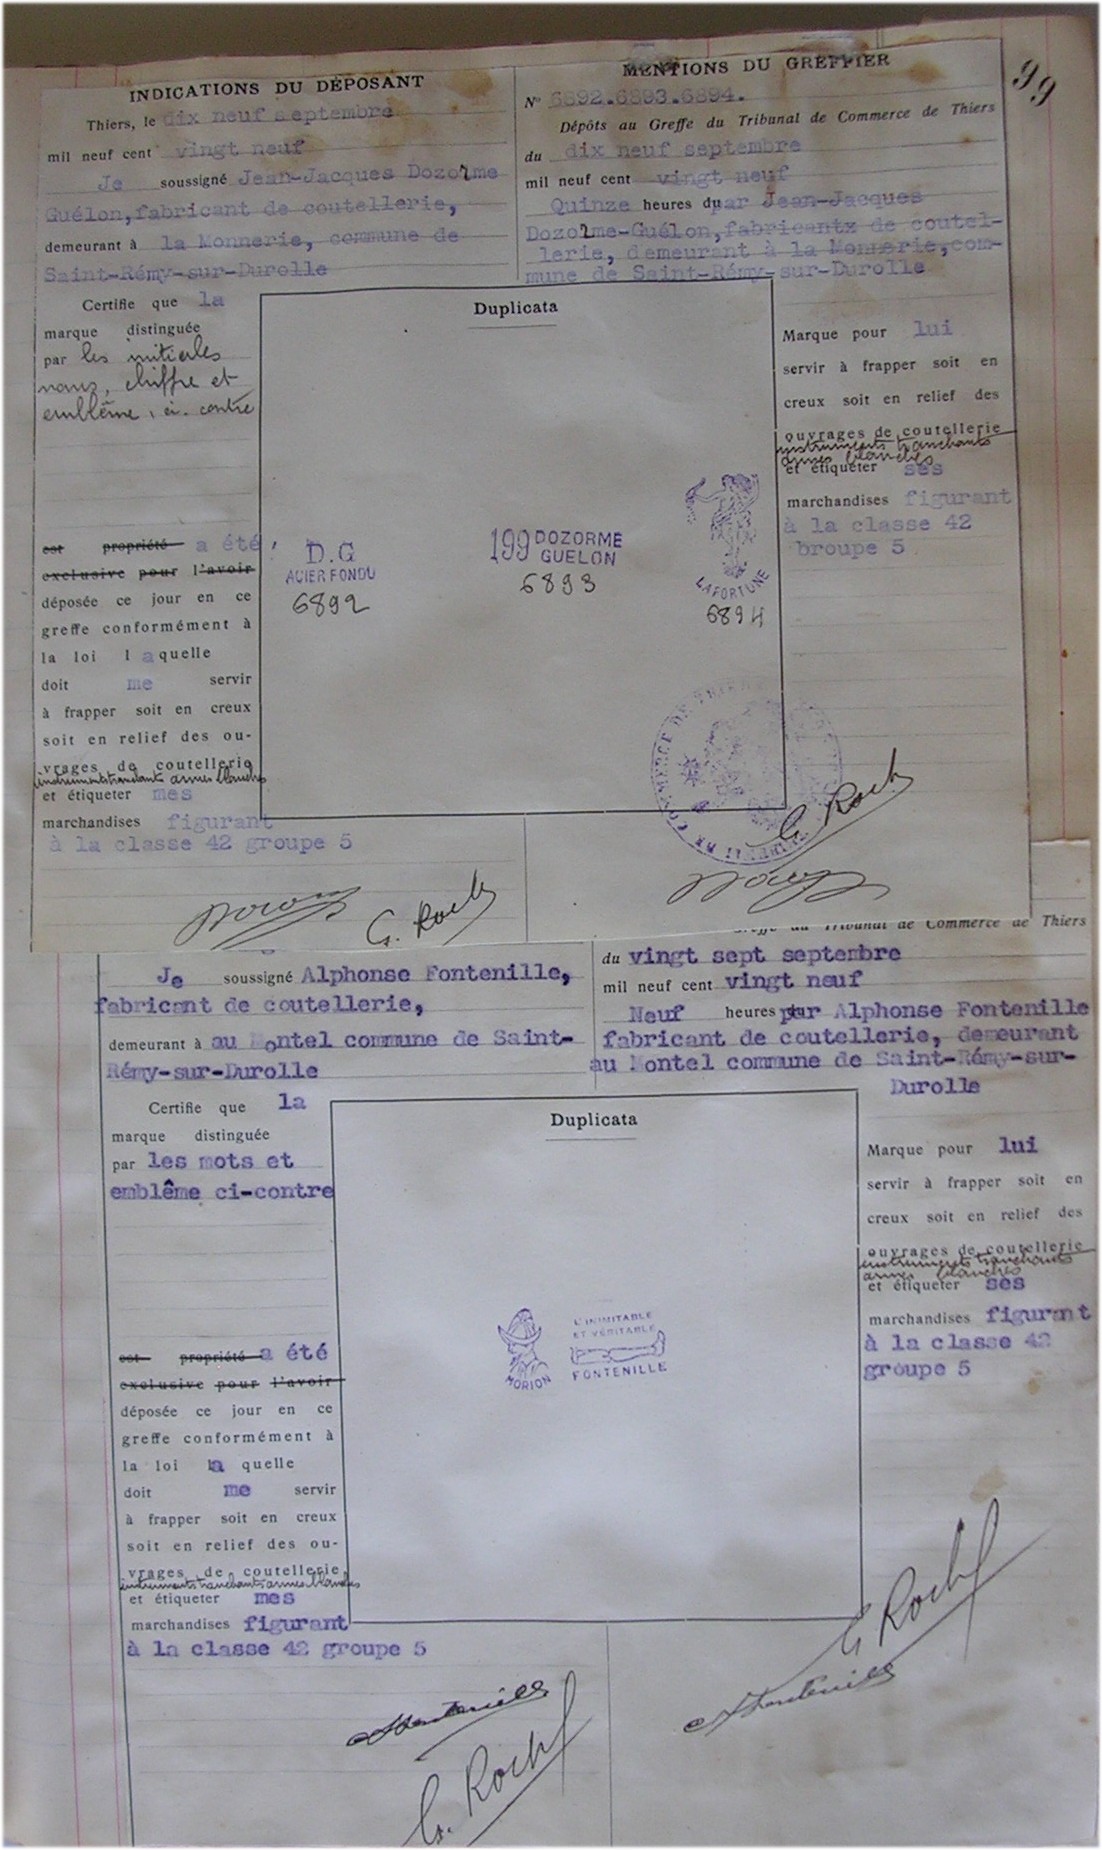 99
INDICATIONS DU DÉPOSANT
Thiers, le dix neuf septembre
mil neuf cent vingt neuf
Je soussigné Jean-Jacques Dozorme
Guélon, fabricant de coutellerie,
demeurant à la Monnerie, commune de
Saint-Rémy-sur-Durolle
MENTIONS DU GREFFIER
N° 6892.6893.6894.
Dépôts au Greffe du Tribunal de Commerce de Thiers
du dix neuf septembre
mil neuf cent vingt neuf
Quinze heures par Jean-Jacques
Dozorme-Guélon, fabricantx de coutel-
lerie, demeurant à la Monnerie, com-
mune de Saint-Rémy-sur-Durolle
Certifie que la
marque distinguée
par les initiales
noms, chiffre et
emblême, ci-contre
est propriété a été
exclusive pour l'avoir
déposée ce jour en ce
greffe conformément à
la loi l aquelle
doit me servir
à frapper soit en creux
soit en relief des ou-
vrages de coutellerie
instruments tranchants armes blanches
et étiqueter mes
marchandises figurant
à la classe 42 groupe 5
Duplicata
D.G
ACIER FONDU
6892
199 DOZORME
GUELON
6893
LAFORTUNE
6894
Marque pour lui
servir à frapper soit en
creux soit en relief des
ouvrages de coutellerie
instruments tranchants
armes blanches
et étiqueter ses
marchandises figurant
à la classe 42
broupe 5
G. Roch
G. Roch
Je soussigné Alphonse Fontenille,
fabricant de coutellerie,
demeurant à au Montel commune de Saint-
Rémy-sur-Durolle
Greffe du Tribunal de Commerce de Thiers
du vingt sept septembre
mil neuf cent vingt neuf
Neuf heures par Alphonse Fontenille
fabricant de coutellerie, demeurant
au Montel commune de Saint-Rémy-sur-
Durolle
Certifie que la
marque distinguée
par les mots et
emblême ci-contre
est propriété a été
exclusive pour l'avoir
déposée ce jour en ce
greffe conformément à
la loi la quelle
doit me servir
à frapper soit en creux
soit en relief des ou-
vrages de coutellerie
instruments tranchants armes blanches
et étiqueter mes
marchandises figurant
à la classe 42 groupe 5
Duplicata
MORION
L'INIMITABLE
ET VÉRITABLE
FONTENILLE
Marque pour lui
servir à frapper soit en
creux soit en relief des
ouvrages de coutellerie
instruments tranchants
armes blanches
et étiqueter ses
marchandises figurant
à la classe 42
groupe 5
G. Roch
Fontenille
Fontenille
G. Roch